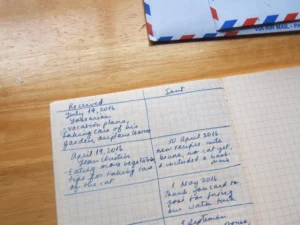 VIA AIR MAIL - PA
Received
Sent
July 14, 2016
- vacation plans,
taking care of his
garden, airplane
April 19, 2016
- Eating more vegetables
tips for taking care
of the cat
30 April 2016
new recipes with
beans, no cat yet.
+ included a book
mark
1 May 2016
Thank you card to
post for fixing
our water
September